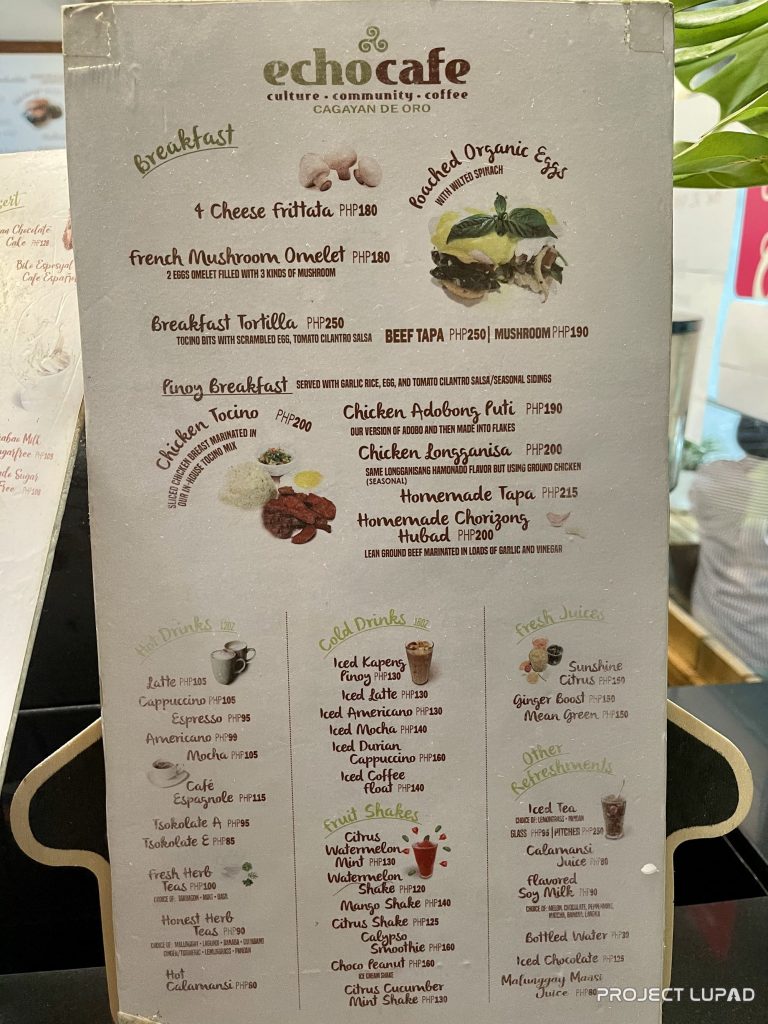 echocafe
culture • community • coffee
CAGAYAN DE ORO
Breakfast
4 Cheese Frittata PHP180
French Mushroom Omelet PHP180
2 EGGS OMELET FILLED WITH 3 KINDS OF MUSHROOM
Poached Organic Eggs
WITH WILTED SPINACH
Breakfast Tortilla PHP250
TOCINO BITS WITH SCRAMBLED EGG, TOMATO CILANTRO SALSA
BEEF TAPA PHP250| MUSHROOM PHP190
Pinoy Breakfast SERVED WITH GARLIC RICE, EGG, AND TOMATO CILANTRO SALSA/SEASONAL SIDINGS
Chicken Tocino PHP200
SLICED CHICKEN BREAST MARINATED IN
OUR IN-HOUSE TOCINO MIX
Chicken Adobong Puti PHP190
OUR VERSION OF ADOBO AND THEN MADE INTO FLAKES
Chicken Longganisa PHP200
SAME LONGGANISANG HAMONADO FLAVOR BUT USING GROUND CHICKEN
(SEASONAL)
Homemade Tapa PHP215
Homemade Chorizong
Hubad PHP200
LEAN GROUND BEEF MARINATED IN LOADS OF GARLIC AND VINEGAR
Hot Drinks 12OZ
Latte PHP105
Cappuccino PHP105
Espresso PHP95
Americano PHP99
Mocha PHP105
Café
Espagnole PHP115
Tsokolate A PHP95
Tsokolate E PHP85
Fresh Herb
Teas PHP100
CHOICE OF: TARRAGON • MINT • BASIL
Honest Herb
Teas PHP90
GINGER/TURMERIC • LEMONGRASS • PANDAN
Hot
Calamansi PHP80
Cold Drinks 16OZ
Iced Kapeng
Pinoy PHP130
Iced Latte PHP130
Iced Americano PHP130
Iced Mocha PHP140
Iced Durian
Cappuccino PHP160
Iced Coffee
Float PHP140
Fruit Shakes
Citrus
Watermelon
Mint PHP130
Watermelon
Shake PHP120
Mango Shake PHP140
Citrus Shake PHP125
Calypso
Smoothie PHP160
Choco Peanut PHP160
ICE CREAM SHAKE
Citrus Cucumber
Mint Shake PHP130
Fresh Juices
Sunshine
Citrus PHP150
Ginger Boost PHP150
Mean Green PHP150
Other
Refreshments
Iced Tea
CHOICE OF: LEMONGRASS • PANDAN
GLASS PHP95 | PITCHER PHP250
Calamansi
Juice PHP80
Flavored
Soy Milk PHP90
CHOICE OF: MELON, CHOCOLATE, PEPPERMINT,
Bottled Water PHP30
Iced Chocolate PHP125
Malunggay Mansi
Juice PHP80
PROJECT LUPAD
Chocolate
Cake PHP120
Biko Espesyal